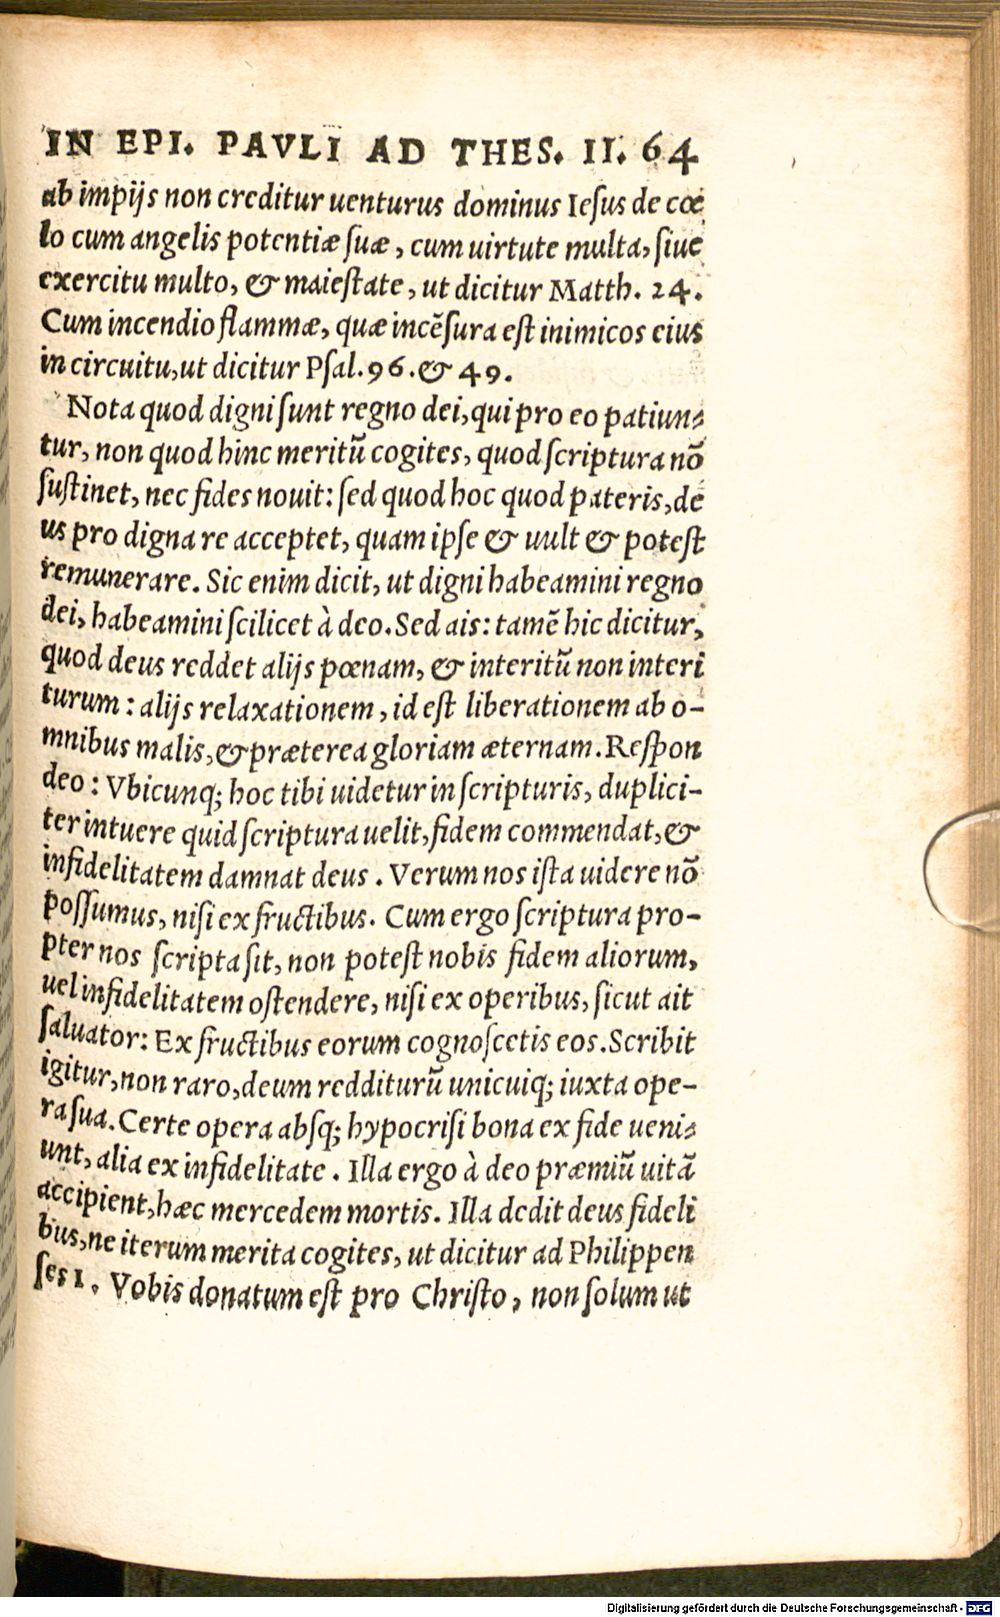 IN EPI. PAVLI AD THES. II. 64
ab impijs non creditur uenturus dominus Iesus de cœ
lo cum angelis potentiæ suæ, cum uirtute multa, siue
exercitu multo, & maiestate, ut dicitur Matth. 24.
Cum incendio flammæ, quæ incẽsura est inimicos eius
in circuitu, ut dicitur Psal. 96. & 49.
Nota quod digni sunt regno dei, qui pro eo patiun-
tur, non quod hinc meritũ cogites, quod scriptura nõ
sustinet, nec fides nouit: sed quod hoc quod pateris, de
us pro digna re acceptet, quam ipse & uult & potest
remunerare. Sic enim dicit, ut digni habeamini regno
dei, habeamini scilicet à deo. Sed ais: tamẽ hic dicitur,
quod deus reddet alijs pœnam, & interitũ non interi
turum: alijs relaxationem, id est liberationem ab o-
mnibus malis, & præterea gloriam æternam. Respon
deo: Vbicunq; hoc tibi uidetur in scripturis, duplici-
ter intuere quid scriptura uelit, fidem commendat, &
infidelitatem damnat deus. Verum nos ista uidere nõ
possumus, nisi ex fructibus. Cum ergo scriptura pro-
pter nos scripta sit, non potest nobis fidem aliorum,
uel infidelitatem ostendere, nisi ex operibus, sicut ait
saluator: Ex fructibus eorum cognoscetis eos. Scribit
igitur, non raro, deum redditurũ unicuiq; iuxta ope-
ra sua. Certe opera absq; hypocrisi bona ex fide ueni-
unt, alia ex infidelitate. Illa ergo à deo præmiũ uitã
accipient, hæc mercedem mortis. Illa dedit deus fideli
bus, ne iterum merita cogites, ut dicitur ad Philippen
ses 1. Vobis donatum est pro Christo, non solum ut
Digitalisierung gefördert durch die Deutsche Forschungsgemeinschaft - DFG